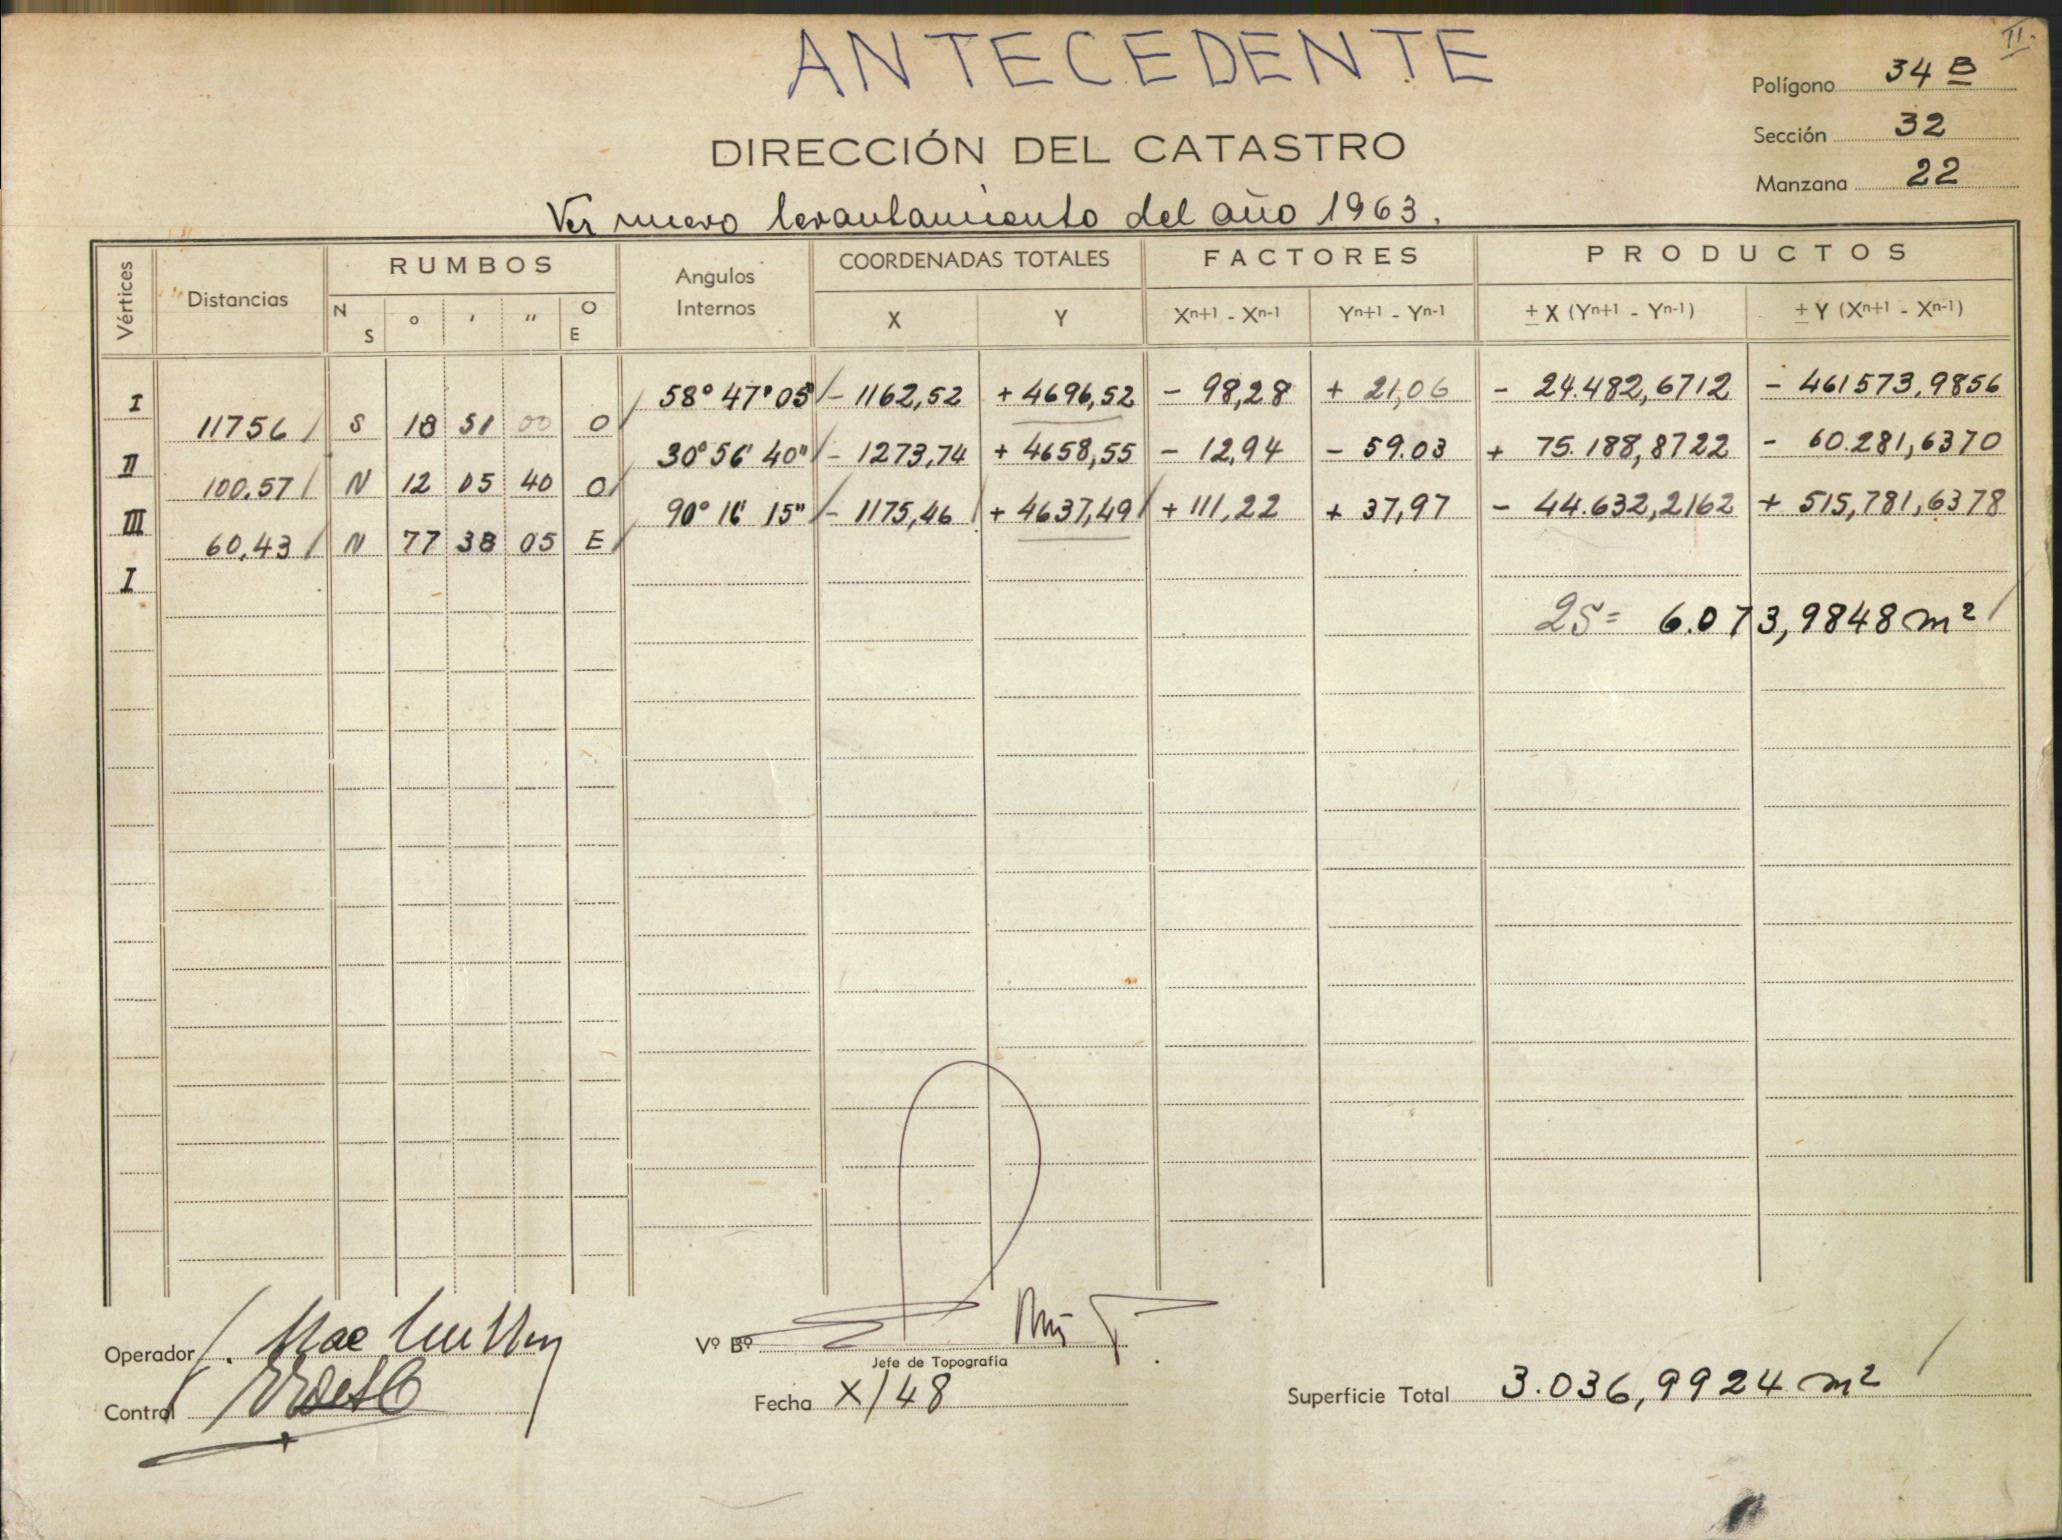 II.
ANTECEDENTE
Polígono 34 B
DIRECCIÓN DEL CATASTRO
Sección 32
Manzana 22
Ver nuevo levantamiento del año 1963.
Vértices Distancias RUMBOS Angulos Internos COORDENADAS TOTALES FACTORES PRODUCTOS
N S o ' " O E X Y Xn+1 - Xn-1 Yn+1 - Yn-1 ± X (Yn+1 - Yn-1) ± Y (Xn+1 - Xn-1)
I 58° 47' 05" - 1162,52 + 4696,52 - 98,28 + 21,06 - 24.482,6712 - 461573,9856
11756 S 18 51 00 O
II 30° 56' 40" - 1273,74 + 4658,55 - 12,94 - 59.03 + 75.188,8722 - 60.281,6370
100.57 N 12 05 40 O
III 90° 16' 15" - 1175,46 + 4637,49 + 111,22 + 37,97 - 44.632,2162 + 515,781,6378
60,43 N 77 38 05 E
I
2S= 6.073,9848 m²
Operador
Vº Bº
Jefe de Topografía
Control
Fecha X/48
Superficie Total 3.036,9924 m²